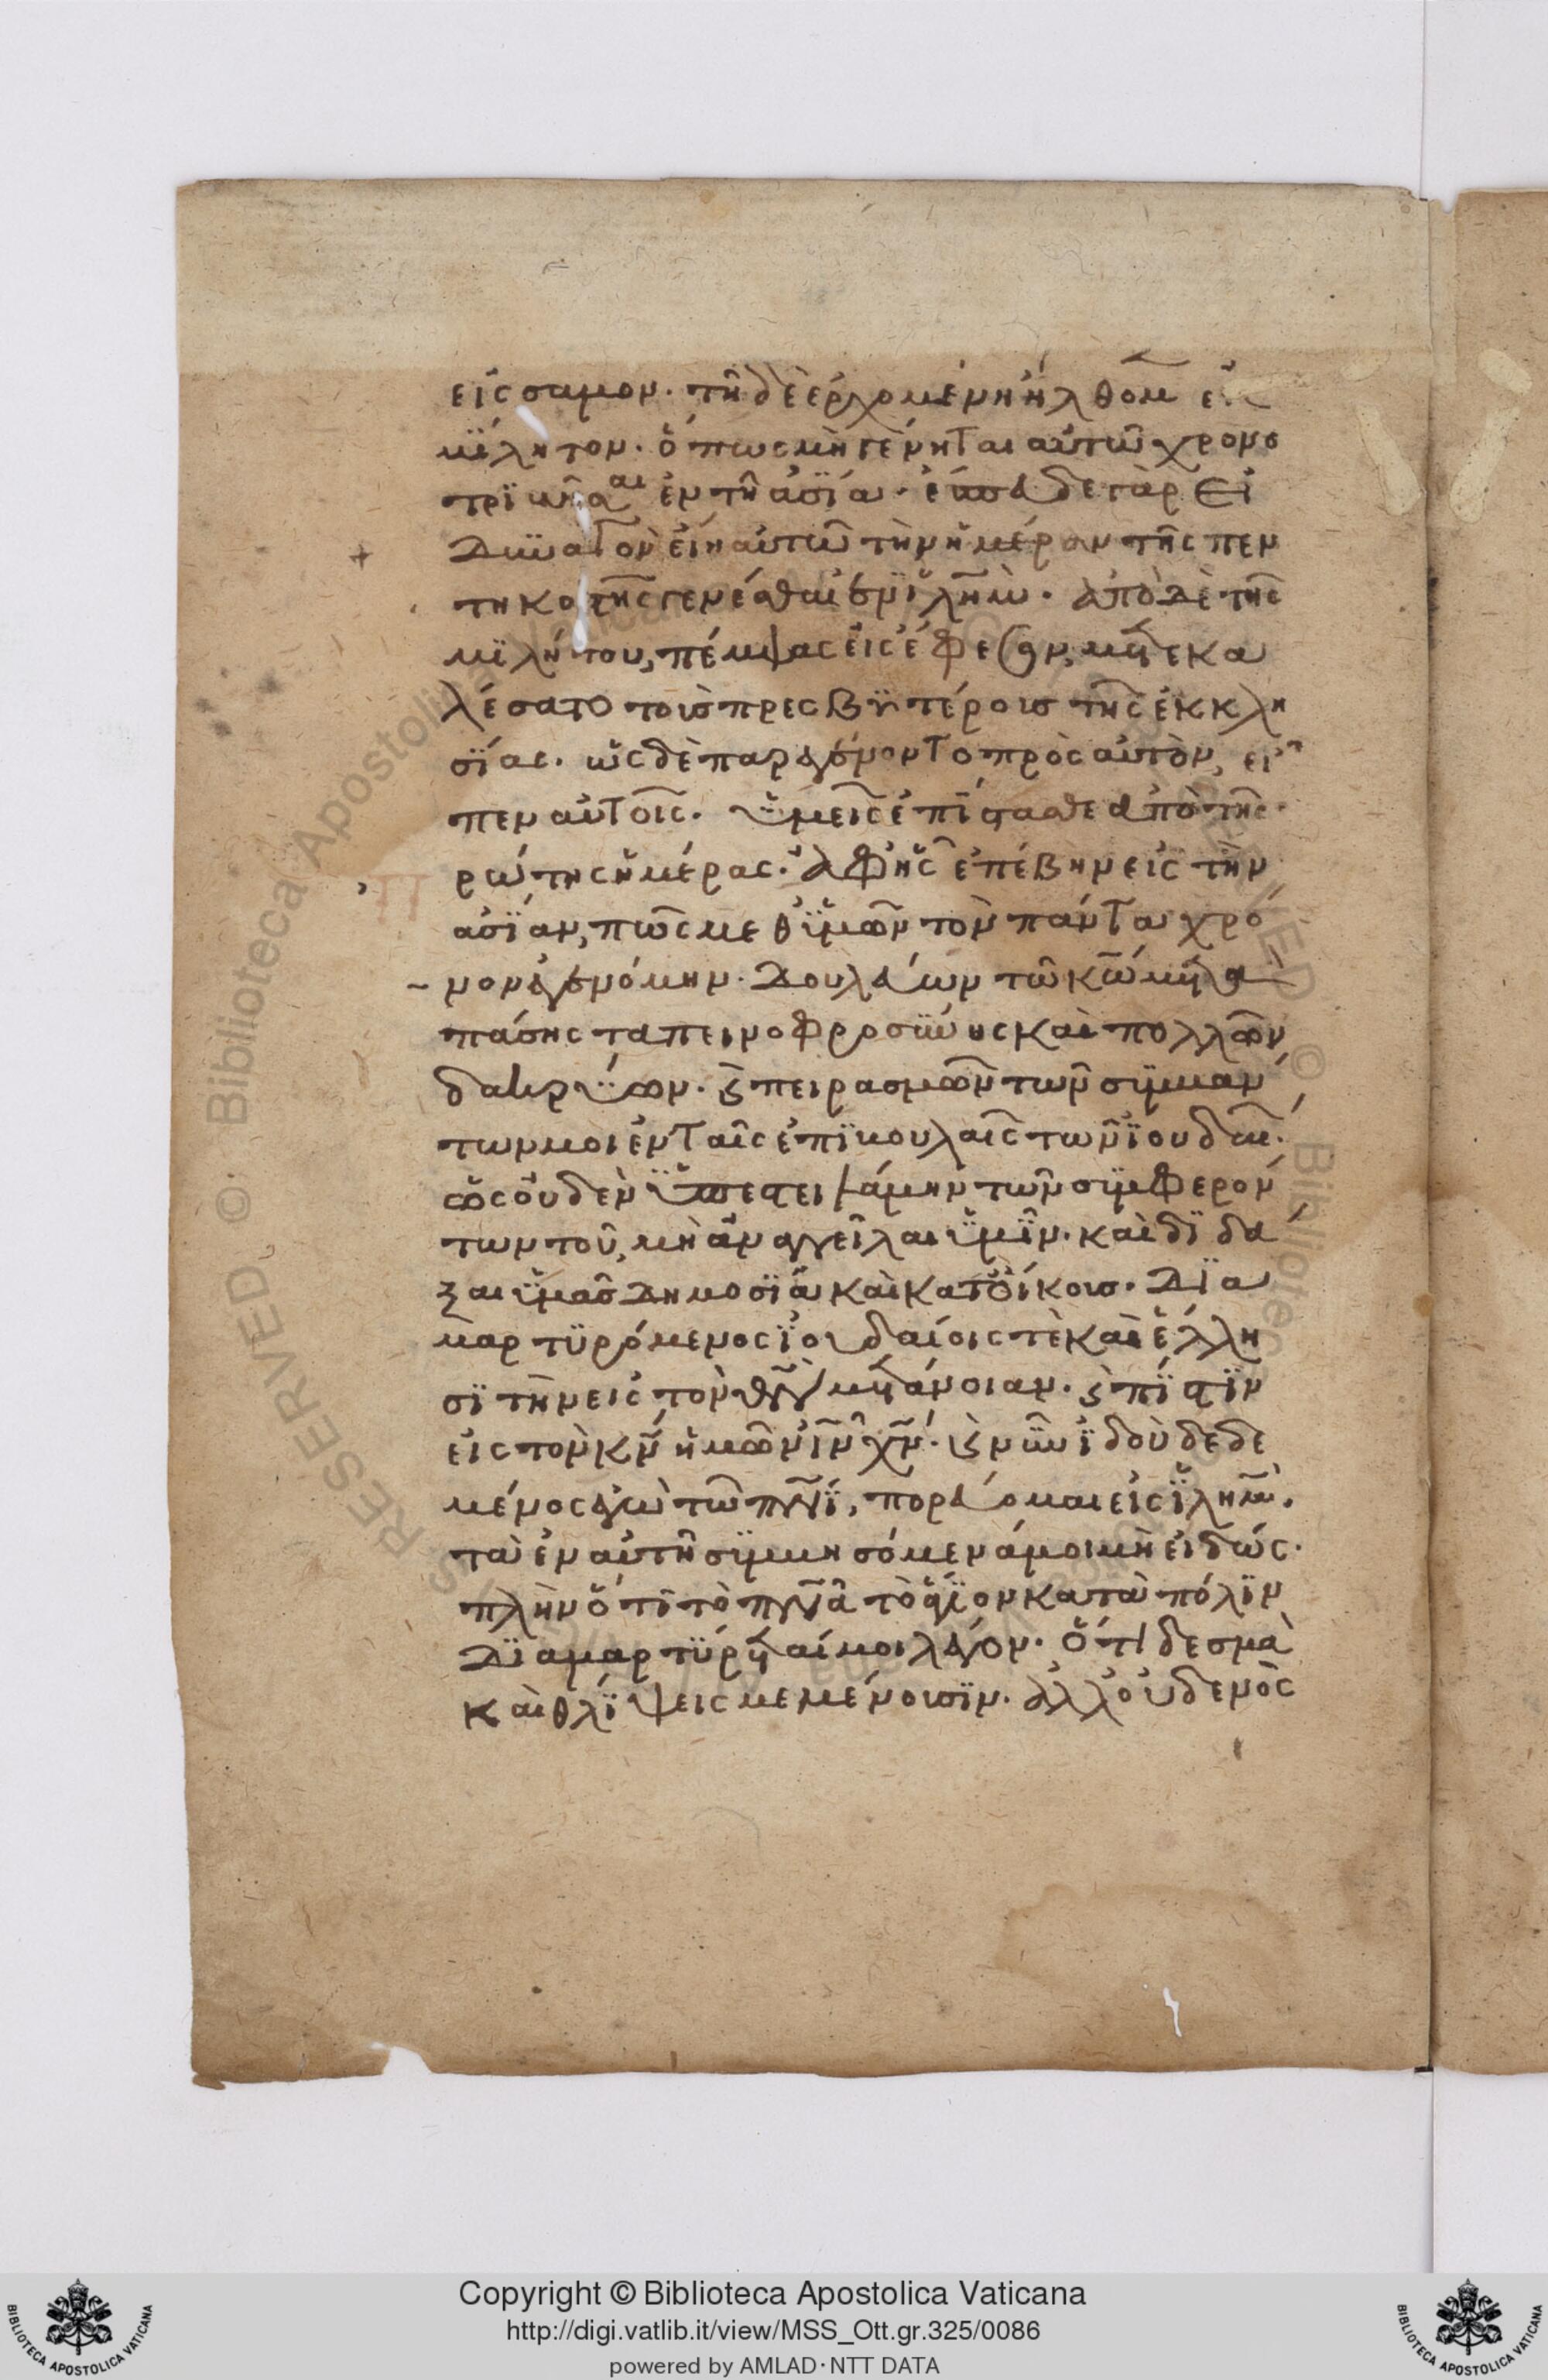 εἰς σαμον. τῆ δὲ ἐρχομένη ἤλθομεν εἰς
μίλητον. ὅπως μὴ γένηται αὐτῶ χρονο
τριβῆσαι ἐν τῆ ἀσΐα. ἔσπευδε γὰρ εἰ
δυνατὸν εἴη αὐτῶ τὴν ἡμέραν τῆς πεν
τηκοστῆς γενέσθαι ἐν ϊλῆμ. ἀπὸ δὲ τῆς
μιλήτου, πέμψας εἰς ἔφεσον, μετεκα
λέσατο τοὺς πρεσβϋτέροις τῆς ἐκκλη
σΐας. ὡς δὲ παρεγένοντο πρὸς αὐτὸν, εἶ
πεν αὐτοῖς. ὑμεῖς ἐπίστασθε ἀπὸ τῆς
ρώτης ἡμέρας. ἀφ' ἧς ἐπέβην εἰς τὴν
ἀσΐαν, πῶς μεθ' ὑμῶν τὸν πάντα χρό
νον ἐγενόμην. δουλεύων τῶ κῶ μετὰ
πάσης ταπεινοφροσύνης καὶ πολλῶν
δακρύων. καὶ πειρασμῶν τῶν συμβάν
των μοι ἐν ταῖς ἐπϊβουλαῖς τῶν ϊουδαίων.
ὡς οὐδὲν ὑπεστειλάμην τῶν συμφερόν
των τοῦ, μὴ ἀναγγεῖλαι ὑμῖν. καὶ δϊδά
ξαι ὑμᾶς δημοσΐα καὶ κατ' οἴκοις. δϊα
μαρτϋρόμενος ϊουδαίοις τὲ καὶ ἕλλη
σϊ τὴν εἰς τὸν θν μετάνοιαν. καὶ πίστϊν
εἰς τὸν κν ἡμῶν ιν χν. καὶ νῦν ϊδοὺ δεδε
μένος ἐγὼ τῶ πνϊ, πορεύομαι εἰς ϊλημ.
τὰ ἐν αὐτῆ συμβησόμενά μοι μὴ εἰδώς.
πλὴν ὅτι τὸ πνα τὸ ἅγϊον κατὰ πόλϊν
δϊαμαρτϋρεταί μοι λέγον. ὅτι δεσμὰ
καὶ θλίψεις με μένουσϊν. ἀλλ' οὐδενὸς
Copyright © Biblioteca Apostolica Vaticana
http://digi.vatlib.it/view/MSS_Ott.gr.325/0086
powered by AMLAD·NTT DATA